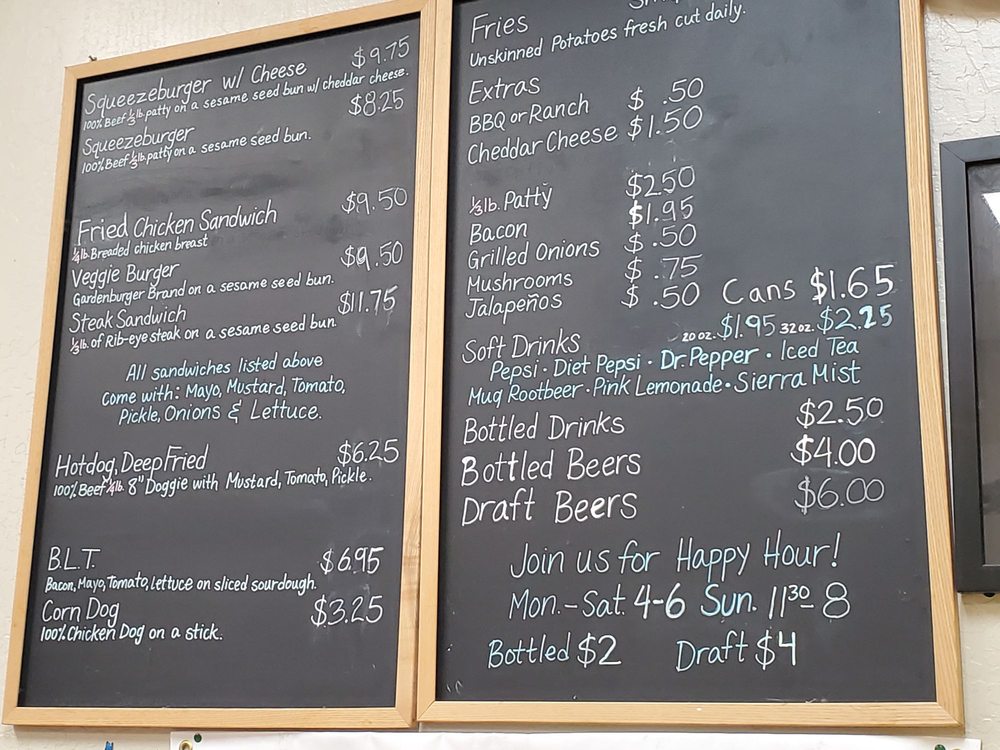 Squeezeburger w/ Cheese $9.75
100% Beef ⅓ lb. patty on a sesame seed bun w/ cheddar cheese.
Squeezeburger $8.25
100% Beef ⅓ lb. patty on a sesame seed bun.
Fried Chicken Sandwich $9.50
¼ lb. Breaded chicken breast
Veggie Burger $9.50
Gardenburger Brand on a sesame seed bun.
Steak Sandwich $11.75
⅓ lb. of Rib-eye steak on a sesame seed bun.
All sandwiches listed above
come with: Mayo, Mustard, Tomato,
Pickle, Onions & Lettuce.
Hotdog, Deep Fried $6.25
100% Beef ¼ lb. 8" Doggie with Mustard, Tomato, Pickle.
B.L.T. $6.95
Bacon, Mayo, Tomato, Lettuce on sliced sourdough.
Corn Dog $3.25
100% Chicken Dog on a stick.
Fries
Unskinned Potatoes fresh cut daily.
Extras
BBQ or Ranch $ .50
Cheddar Cheese $1.50
⅓ lb. Patty $2.50
Bacon $1.95
Grilled Onions $ .50
Mushrooms $ .75
Jalapeños $ .50
Cans $1.65
Soft Drinks 20 oz. $1.95 32 oz. $2.25
Pepsi · Diet Pepsi · Dr. Pepper · Iced Tea
Mug Rootbeer · Pink Lemonade · Sierra Mist
Bottled Drinks $2.50
Bottled Beers $4.00
Draft Beers $6.00
Join us for Happy Hour!
Mon. - Sat. 4-6 Sun. 11³⁰- 8
Bottled $2 Draft $4